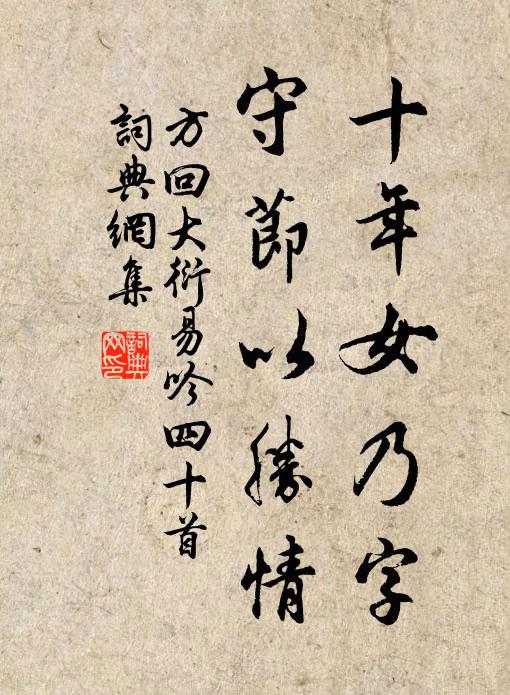 十年女乃字
守節以勝情
方回大衍易吟四十首
詞典網集
詞典網印